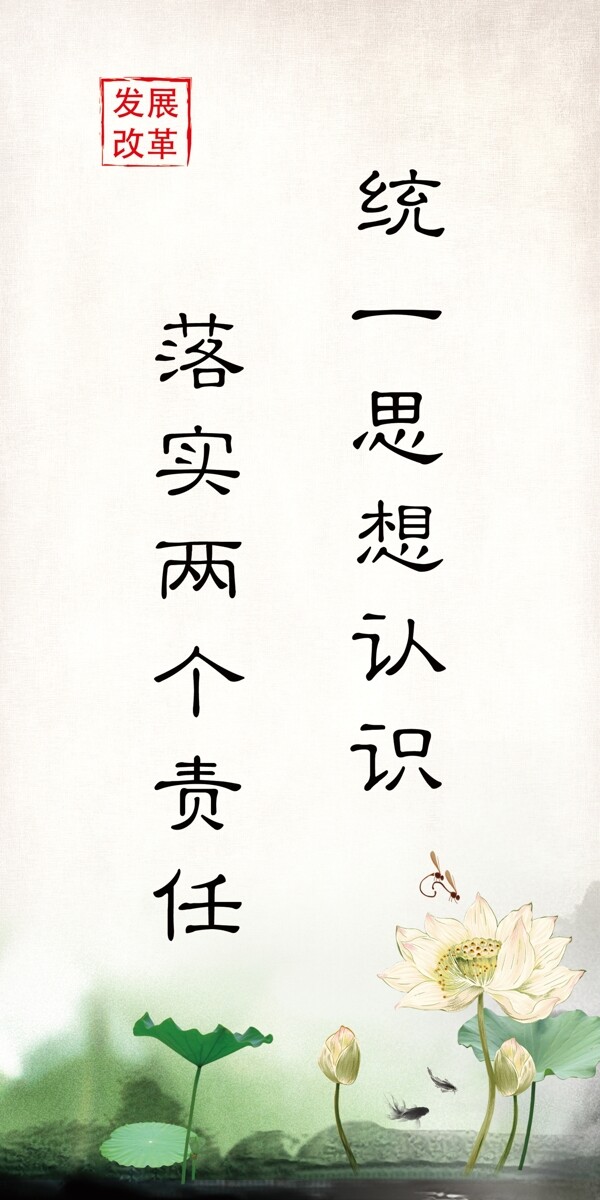 发展
改革
统一思想认识
落实两个责任